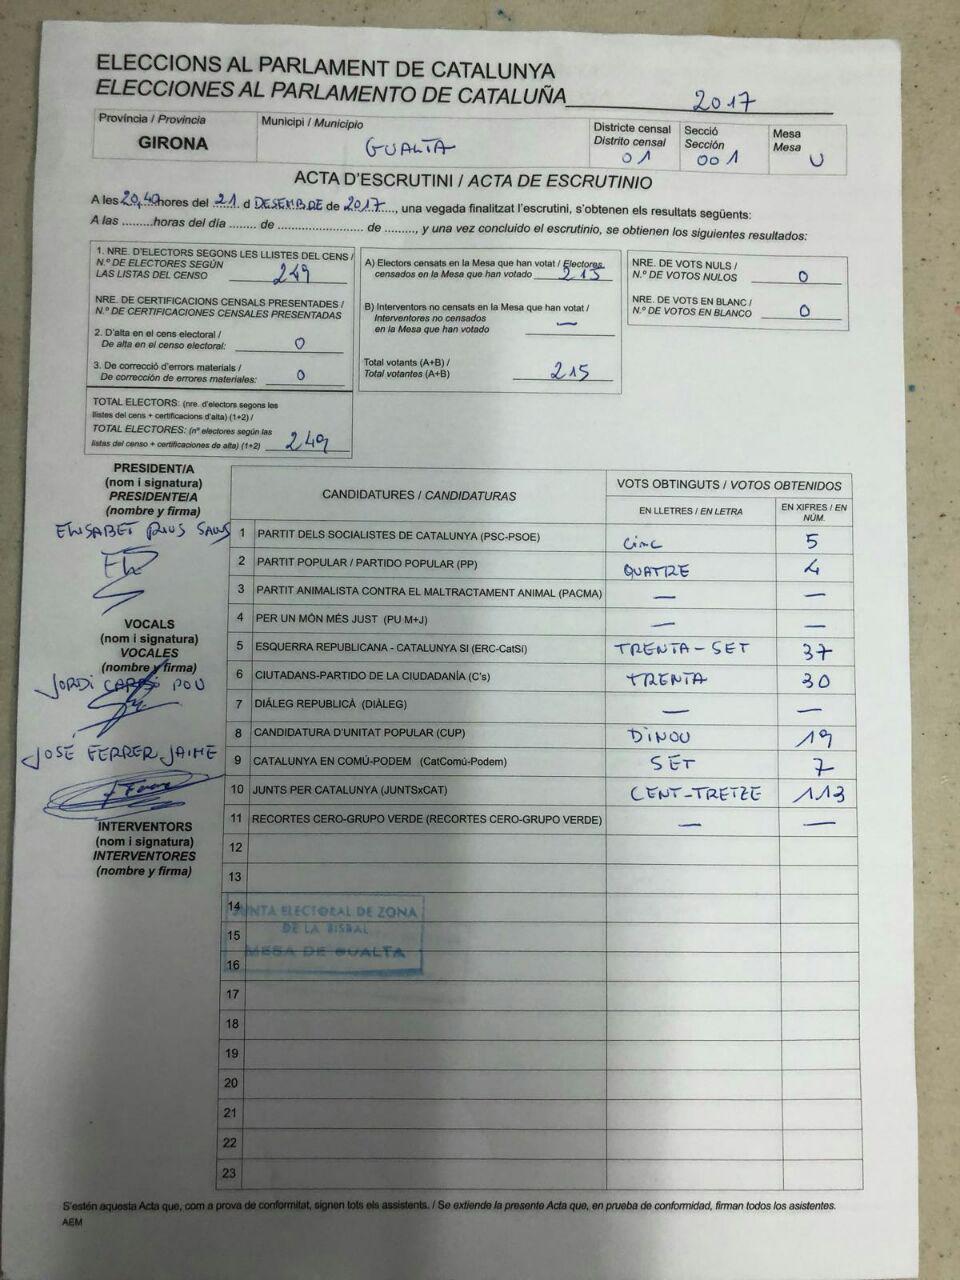 ELECCIONS AL PARLAMENT DE CATALUNYA
ELECCIONES AL PARLAMENTO DE CATALUÑA 2017
Província / Provincia
GIRONA
Municipi / Municipio
GUALTA
Districte censal
Distrito censal
01
Secció
Sección
001
Mesa
Mesa
U
ACTA D'ESCRUTINI / ACTA DE ESCRUTINIO
A les 20,40 hores del 21 d DESEMBRE de 2017, una vegada finalitzat l'escrutini, s'obtenen els resultats següents:
A las .........horas del día ........ de ......................... de ........., y una vez concluido el escrutinio, se obtienen los siguientes resultados:
1. NRE. D'ELECTORS SEGONS LES LLISTES DEL CENS /
N.º DE ELECTORES SEGÚN
LAS LISTAS DEL CENSO 249
NRE. DE CERTIFICACIONS CENSALS PRESENTADES /
N.º DE CERTIFICACIONES CENSALES PRESENTADAS
2. D'alta en el cens electoral /
De alta en el censo electoral: 0
3. De correcció d'errors materials /
De corrección de errores materiales: 0
TOTAL ELECTORS: (nre. d'electors segons les
llistes del cens + certificacions d'alta) (1+2) /
TOTAL ELECTORES: (nº electores según las
listas del censo + certificaciones de alta) (1+2) 249
A) Electors censats en la Mesa que han votat / Electores
censados en la Mesa que han votado 215
B) Interventors no censats en la Mesa que han votat /
Interventores no censados
en la Mesa que han votado —
Total votants (A+B) /
Total votantes (A+B) 215
NRE. DE VOTS NULS /
N.º DE VOTOS NULOS 0
NRE. DE VOTS EN BLANC /
N.º DE VOTOS EN BLANCO 0
PRESIDENT/A
(nom i signatura)
PRESIDENTE/A
(nombre y firma)
ELISABET RIUS SAUS
VOCALS
(nom i signatura)
VOCALES
(nombre y firma)
JORDI POU
JOSÉ FERRER JAIME
INTERVENTORS
(nom i signatura)
INTERVENTORES
(nombre y firma)
CANDIDATURES / CANDIDATURAS
VOTS OBTINGUTS / VOTOS OBTENIDOS
EN LLETRES / EN LETRA
EN XIFRES / EN NÚM.
1 PARTIT DELS SOCIALISTES DE CATALUNYA (PSC-PSOE) Cinc 5
2 PARTIT POPULAR / PARTIDO POPULAR (PP) QUATRE 4
3 PARTIT ANIMALISTA CONTRA EL MALTRACTAMENT ANIMAL (PACMA) — —
4 PER UN MÓN MÉS JUST (PU M+J) — —
5 ESQUERRA REPUBLICANA - CATALUNYA SI (ERC-CatSí) TRENTA-SET 37
6 CIUTADANS-PARTIDO DE LA CIUDADANÍA (C's) TRENTA 30
7 DIÀLEG REPUBLICÀ (DIÀLEG) — —
8 CANDIDATURA D'UNITAT POPULAR (CUP) DINOU 19
9 CATALUNYA EN COMÚ-PODEM (CatComú-Podem) SET 7
10 JUNTS PER CATALUNYA (JUNTSxCAT) CENT-TRETZE 113
11 RECORTES CERO-GRUPO VERDE (RECORTES CERO-GRUPO VERDE) — —
12
13
14
15
16
JUNTA ELECTORAL DE ZONA
DE LA BISBAL
MESA DE GUALTA
17
18
19
20
21
22
23
S'estén aquesta Acta que, com a prova de conformitat, signen tots els assistents. / Se extiende la presente Acta que, en prueba de conformidad, firman todos los asistentes.
AEM